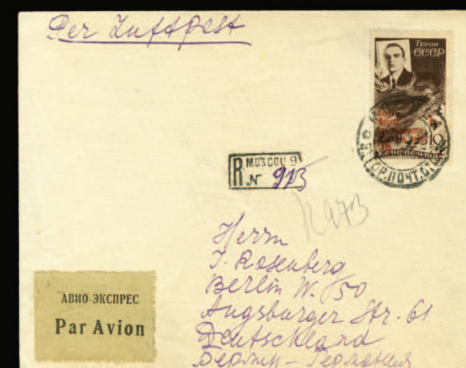 Per Luftpost
ГЕРОИ
СССР
R MOSCOU 9
№ 913
R 973
Herrn
J. Rosenberg
Berlin W. 50
Augsburger Str. 61
Deutschland
Берлин - Германия
АВИО-ЭКСПРЕС
Par Avion